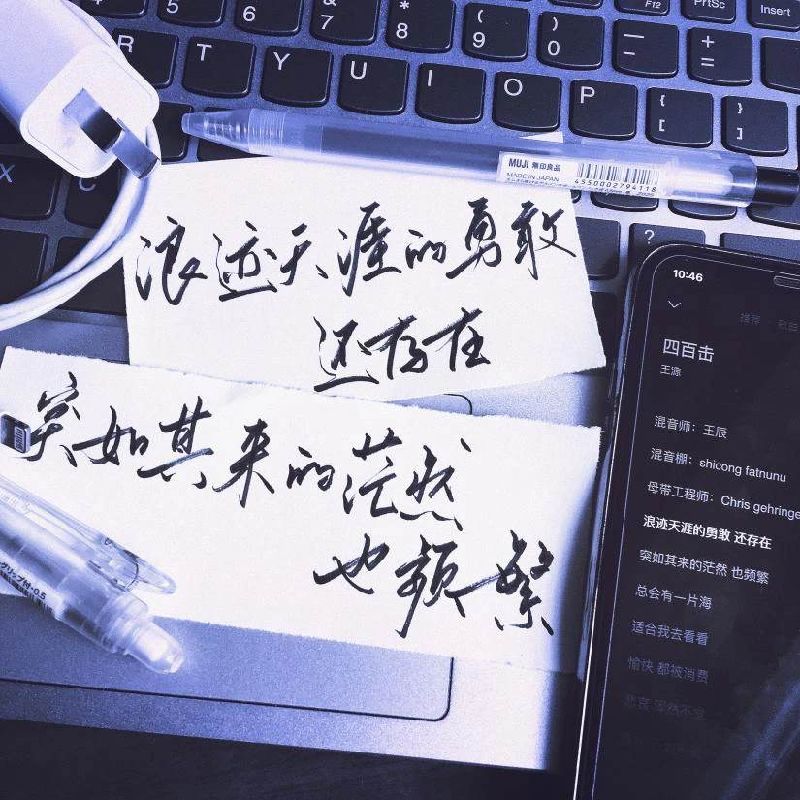 F12
PrtSc
Insert
5
6
&
7
*
8
(
9
)
0
—
+
=
R
T
Y
U
I
O
P
{
[
}
]
X
C
?
MUJI 無印良品
MADE IN JAPAN
4550002794118
浪迹天涯的勇敢
还存在
突如其来的茫然
也频繁
0.5
10:46
推荐
四百击
王源
混音师：王辰
混音棚：shicong fatnunu
母带工程师：Chris gehringe
浪迹天涯的勇敢 还存在
突如其来的茫然 也频繁
总会有一片海
适合我去看看
愉快 都被消费